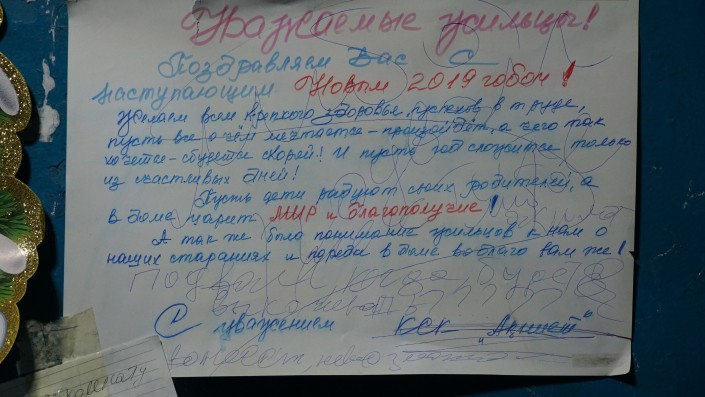 Уважаемые жильцы!
Поздравляем Вас с
наступающим Новым 2019 годом!
Желаем всем крепкого здоровья, успехов в труде,
пусть все о чём мечтается - произойдёт, а чего так
хочется - сбудется скорей! И пусть год сложится только
из счастливых дней!
Пусть дети радуют своих родителей, а
в доме царит МИР и благополучие!
А так же было понимание жильцов к нам о
наших стараниях и в доме во благо вам же!
Подвал когда будете
С уважением КСК